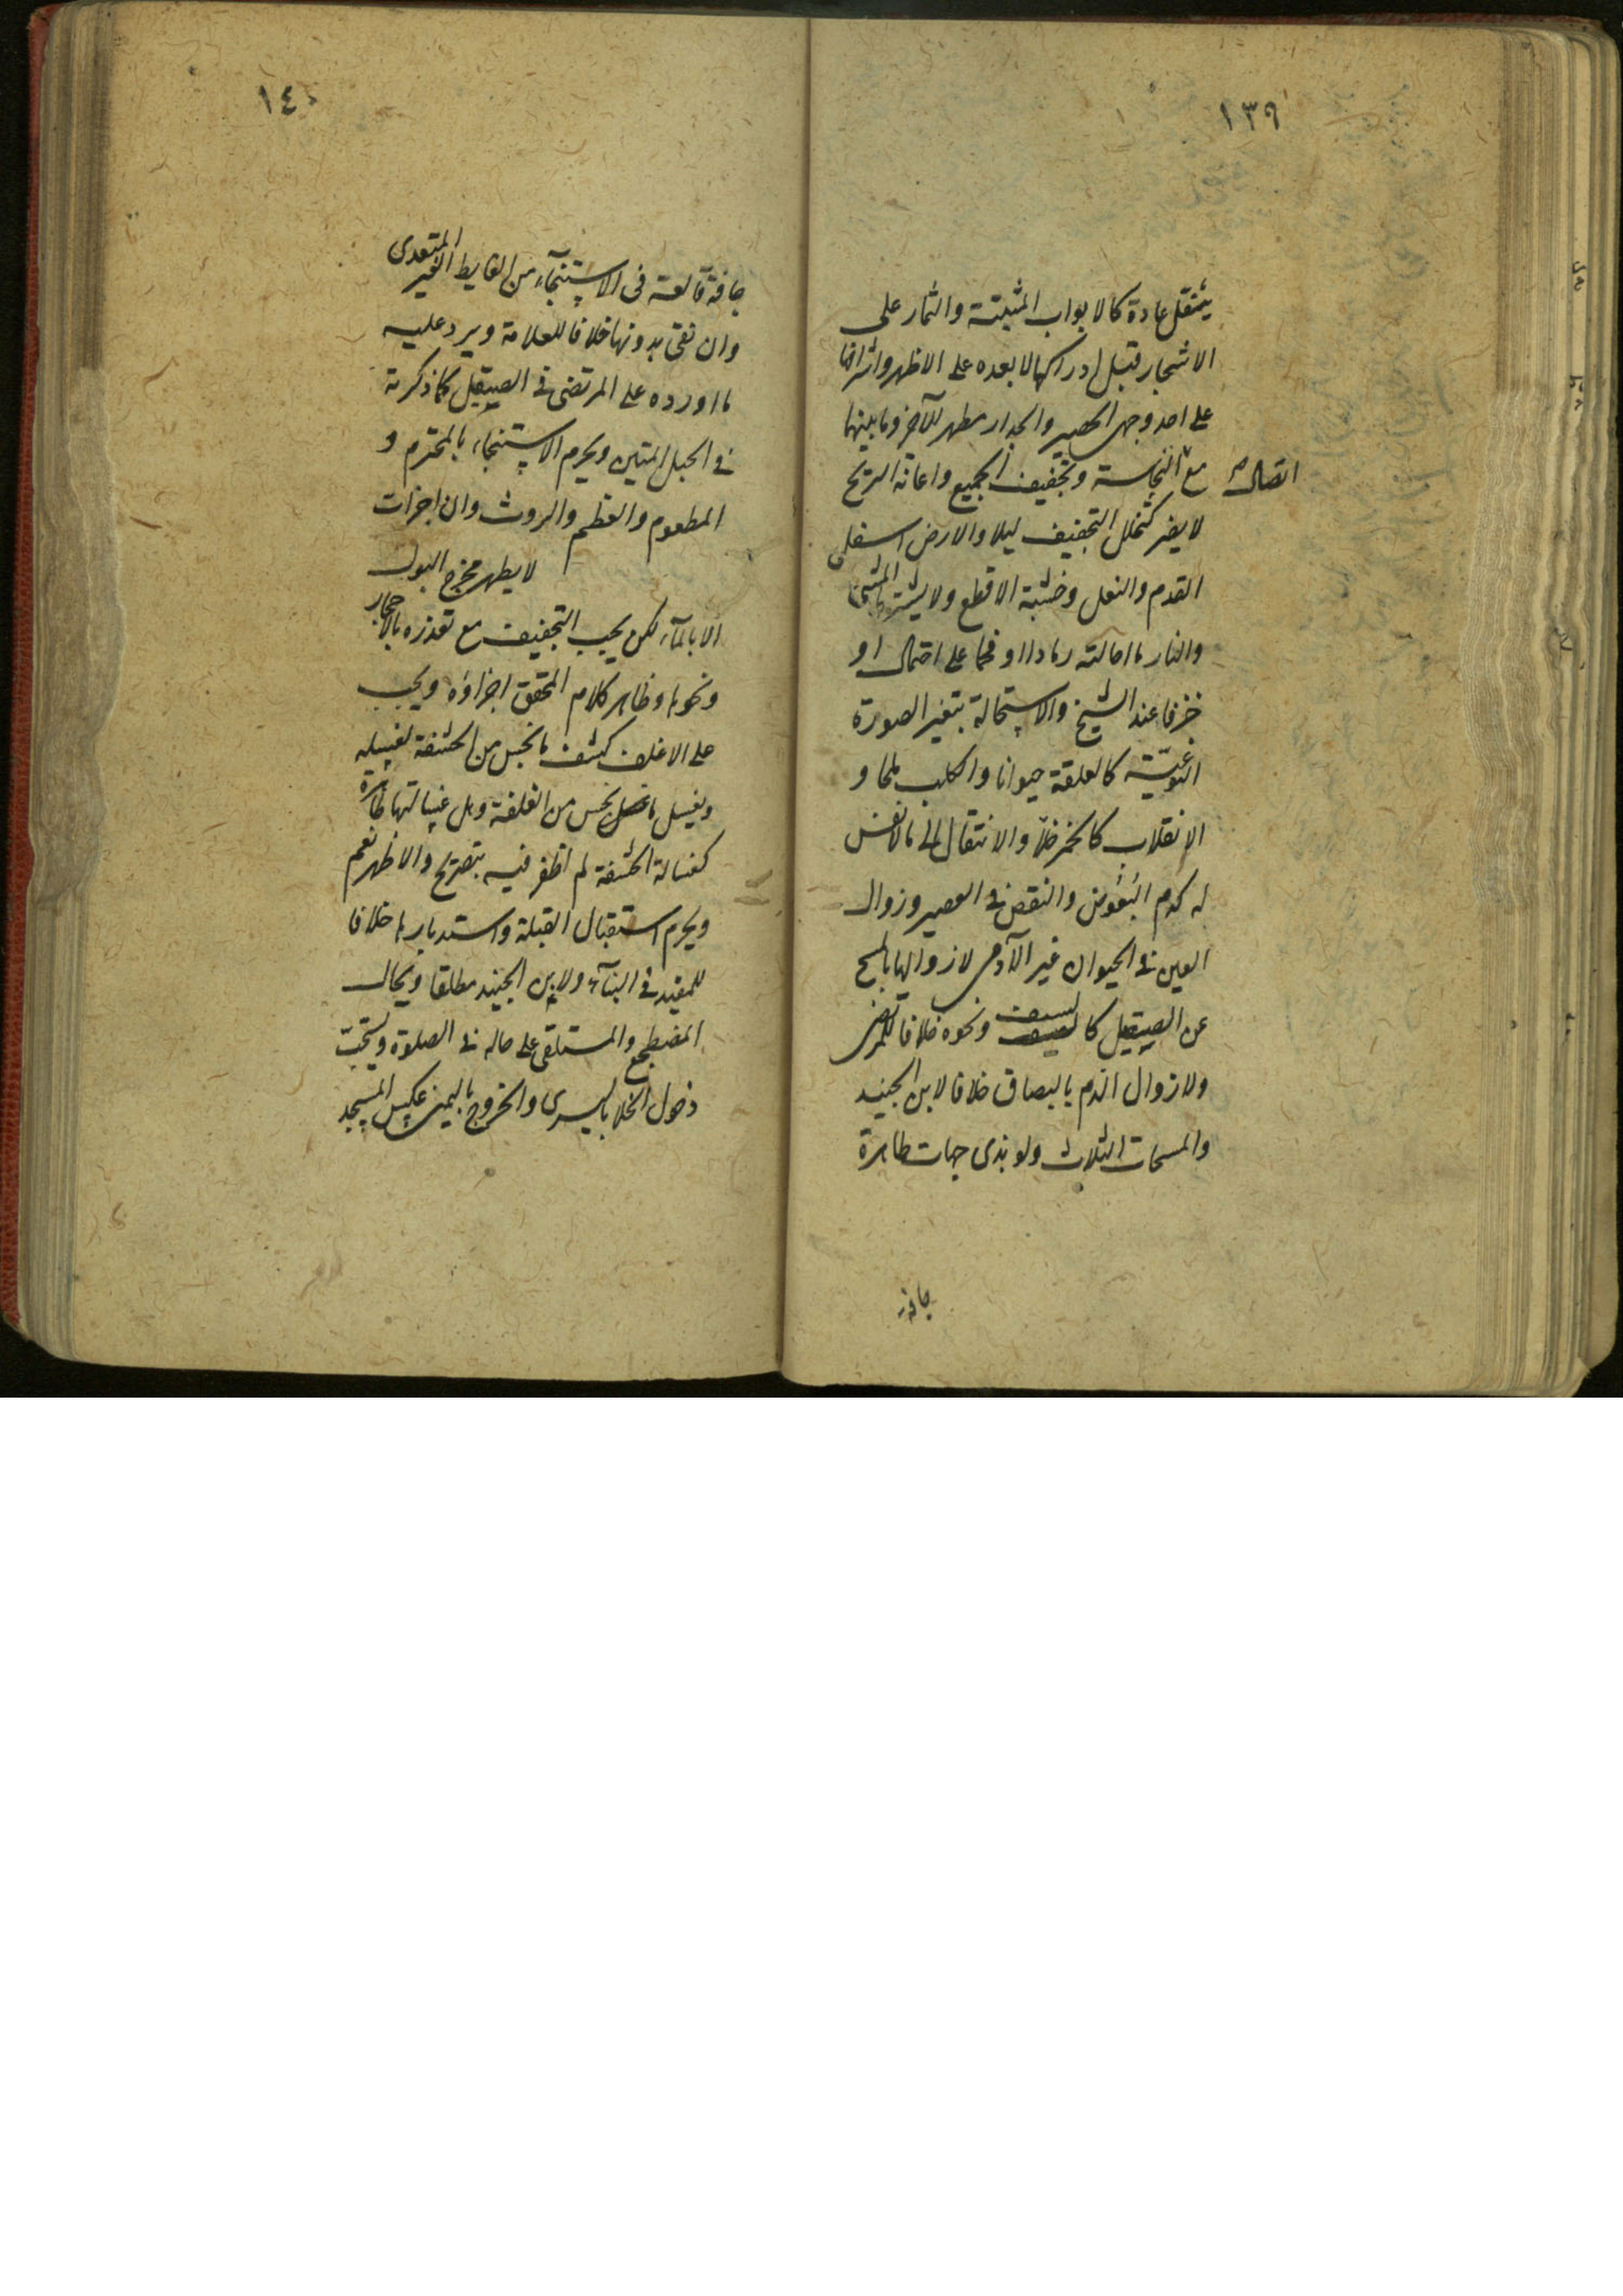 ١٣٩
ينتقل عادة كالابواب المثبتة والثمار على
الاشجار قبل ادراكها لا بعده على الاظهر واشراقها
على احد وجهى الحصير والجدار مطهر للآخر وما بينهما
اتصال مع النجاسة وتجفيف الجميع واعانة الريح
لا يضر كتخلل التجفيف ليلا والارض اسفل
القدم والنعل وخشبة الاقطع ولا يشترط المشى
والنار ما احالته رمادا او فحما على احتمال او
خزفا عند الشيخ والاستحالة بتغير الصورة
النوعيّة كالعلقة حيوانا والكلب ملحا و
الانقلاب كالخمر خلّا والانتقال الى ما لا نفس
له كدم البعوض والنقص فى العصير وزوال
العين فى الحيوان غير الآدمى لا زوالها بالمسح
عن الصيقيل كالسيف ونحوه خلافا للمرتضى
ولا زوال الدم بالبصاق خلافا لابن الجنيد
والمسحات الثلاث ولو بذى جهات طاهرة
جافة
١٤٠
جافة قالعة فى الاستنجآء من الغايط الغير المتعدى
وان نقى بدونها خلافا للعلامة ويرد عليه
ما اورده على المرتضى فى الصيقيل كما ذكرته
فى الحبل المتين ويحرم الاستنجاء بالمحترم و
المطعوم والعظم والروث وان اجزات
لا يطهر مخرج البول
الا بالمآء لكن يجب التجفيف مع تعذره بالاحجار
ونحوها وظاهر كلام المحقق اجزاؤه ويجب
على الاغلف كشف ما نجس من الحشفة لغسله
ويغسل ما نجس من الغلفة وهل غسالتها طاهرة
كغسالة الحشفة لم اظفر فيه بتصريح والاظهر نعم
ويحرم استقبال القبلة واستدبارها خلافا
للمفيد فى البنآء ولابن الجنيد مطلقا ويحال
المضطجع والمستلقى على حاله فى الصلوة ويستحبّ
دخول الخلا باليسرى والخروج باليمنى عكس المسجد